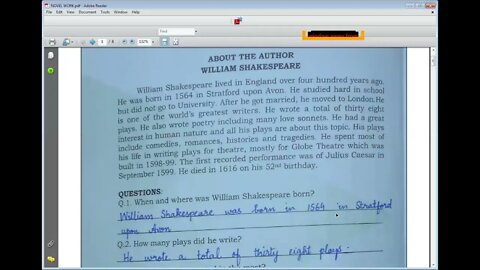 NOVEL WORK.pdf - Adobe Reader
Find
ABOUT THE AUTHOR
WILLIAM SHAKESPEARE
William Shakespeare lived in England over four hundred years ago.
He was born in 1564 in Stratford upon Avon. He studied hard in school
but did not go to University. After he got married, he moved to London.He
is one of the world's greatest writers. He wrote a total of thirty eight
plays. He also wrote poetry including many love sonnets. He had a great
interest in human nature and all his plays are about this topic. His plays
include comedies, romances, histories and tragedies. He spent most of
his life in writing plays for theatre, mostly for Globe Theatre which was
built in 1598-99. The first recorded performance was of Julius Caesar in
September 1599. He died in 1616 on his 52nd birthday.
QUESTIONS:
Q.1. When and where was William Shakespeare born?
William Shakespeare was born in 1564 in Stratford
upon Avon
Q.2. How many plays did he write?
He wrote a total of thirty eight plays.